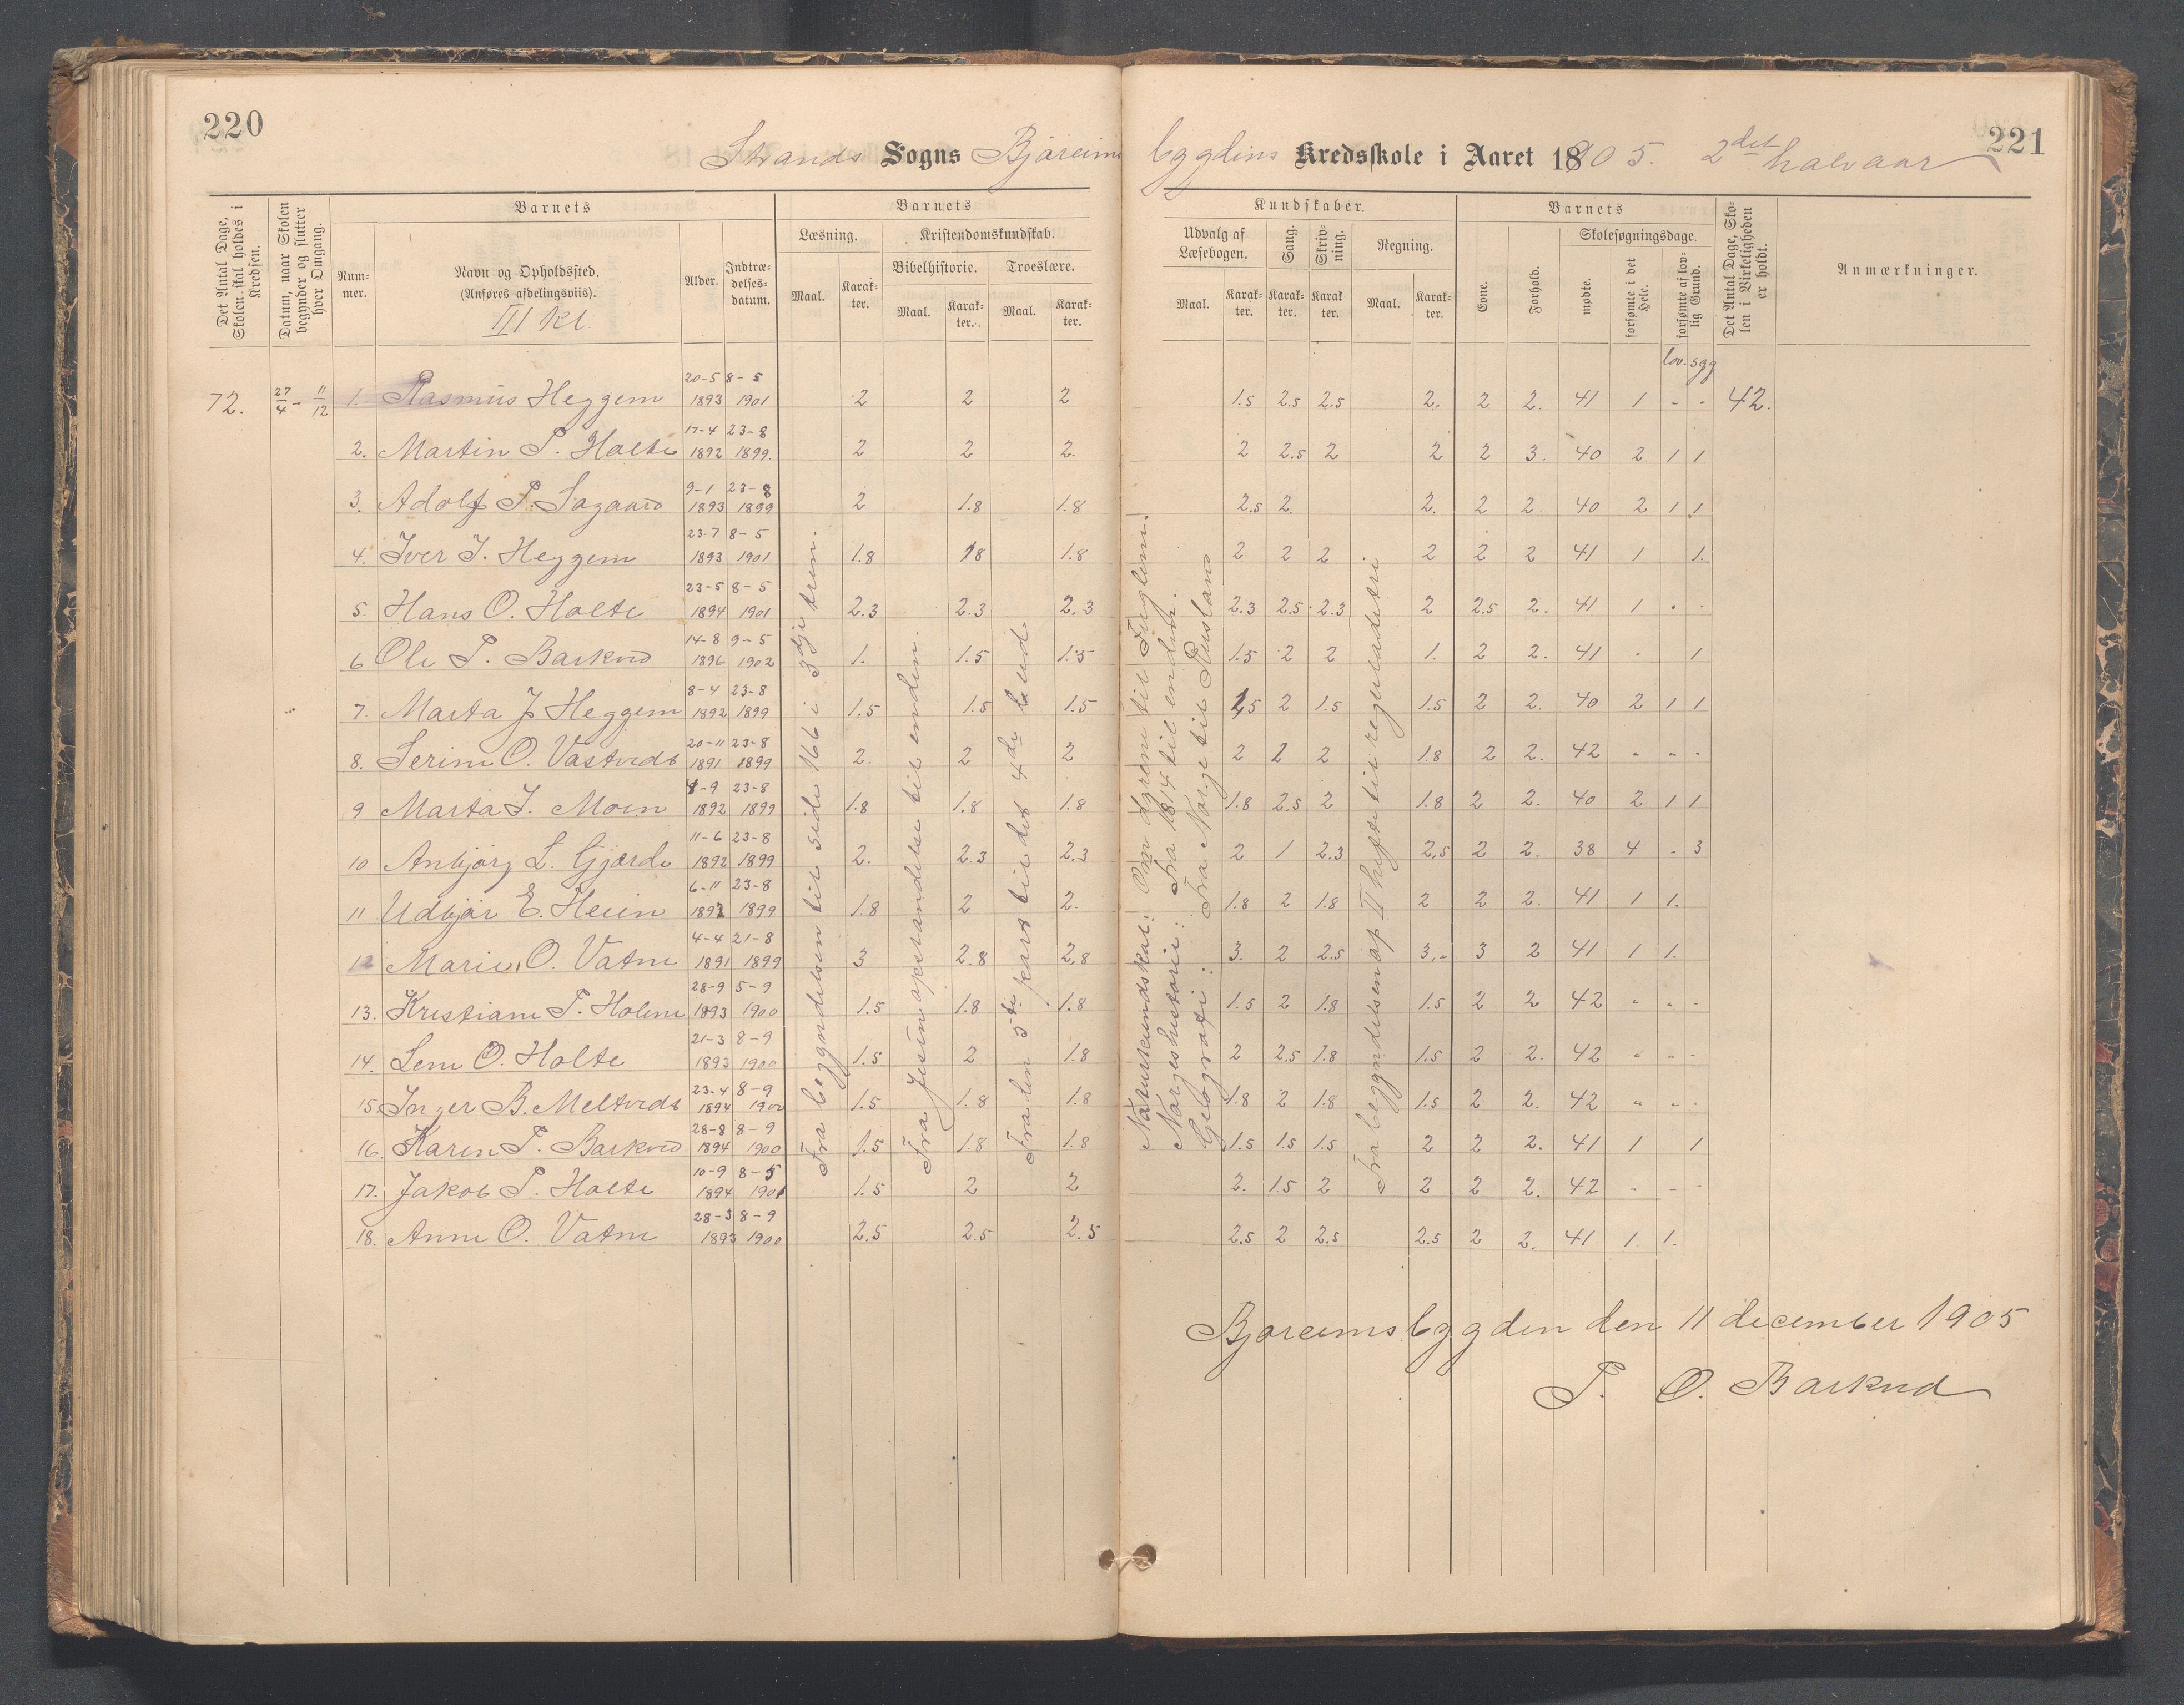 220
221
Strands Sogns Björeims bygdens Kredsskole i Aaret 1905. 2det halvaar
Det Antal Dage, Skolen skal holdes i Kredsen.
Datum, naar Skolen begynder og slutter hver Omgang.
Barnets
Barnets
Kundskaber.
Barnets
Det Antal Dage, Skolen i Virkeligheden er holdt.
Anmærkninger.
Nummer.
Navn og Opholdssted.
(Anføres afdelingsviis).
III Kl.
Alder.
Indtrædelsesdatum.
Læsning.
Kristendomskundskab.
Udvalg af Læsebogen.
Sang.
Skrivning.
Regning.
Evne.
Forhold.
Skolesøgningsdage.
Bibelhistorie.
Troeslære.
Maal.
Karakter.
Maal.
Karakter.
Maal.
Karakter.
Maal.
Karakter.
Karakter.
Karakter.
Maal.
Karakter.
mødte.
forsømte i det Hele.
forsømte af lovlig Grund.
lov. sgg
72. 27/4 - 11/12 1. Rasmus Heggem 20-5 1893 8-5 1901 2 2 2 1.5 2.5 2.5 2. 2 2. 41 1 - - 42.
2. Martin P. Holte 17-4 1892 23-8 1899. 2 2 2. 2 2.5 2 2 2 3. 40 2 1 1
3. Adolf P. Sagaard 9-1 1893 23-8 1899 2 1.8 1.8 2.5 2. 2. 2 2. 40 2 1 1
4. Iver J. Heggem 23-7 1893 8-5 1901 1.8 1.8 1.8 2 2 2 2 2 2 41 1 1.
5. Hans O. Holte 23-5 1894 8-5 1901 2.3 2.3 2.3 2.3 2.5 2.3 2 2.5 2. 41 1 - -
6 Ole P. Barkved 14-8 1896 9-5 1902 1. 1.5 1.5 1.5 2 2 1. 2 2. 41 - 1
7. Marta J. Heggem 8-4 1892 23-8 1899 1.5 1.5 1.5 1.5 2 1.5 1.5 2 2. 40 2 1 1
8. Serine O. Vastveds 20-11 1891 23-8 1899 2. 2 2 2 2 2 1.8 2 2. 42 - - -
9 Marta J. Moen 4-9 1892 23-8 1899 1.8 1.8 1.8 1.8 2.5 2 1.8 2 2. 40 2 1 1
10 Anbjørg L. Gjærde 11-6 1892 23-8 1899 2. 2.3 2.3 2 1 2.3 2,5 2 2. 38 4 - 3
11 Udbjør E. Heien 6-11 1892 23-8 1899 1.8 2 2. 1.8 2 1.8 2 2 2. 41 1 1.
12 Marie O. Vatne 4-4 1891 21-8 1899 3 2.8 2,8 3. 2 2.5 3,- 3 2 41 1 1.
13. Kristiane P. Holme 28-9 1893 5-9 1900 1.5 1.8 1.8 1.5 2 1.8 1.5 2 2 42 - - -
14. Lene O. Holte 21-3 1893 8-9 1900 1.5 2 1.8 2 2.5 1.8 1.5 2 2. 42 - - -
15. Inger B. Meltveds 23-4 1894 8-9 1900 1.5 1.8 1.8 1.8 2 1.8 1.5 2 2. 42 - - -
16. Karen P. Barkved 28-8 1894 8-9 1900 1.5 1.8 1.8 1.5 1.5 1.5 2 2 2. 41 1 1
17. Jakob P. Holte 10-9 1894 8-5 1901 1.5 2 2 2. 1.5 2 2 2 2. 42 - - -
18. Anne O. Vatne 28-3 1893 8-9 1900 2.5 2.5 2.5 2.5 2 2.5 2.5 2 2. 41 1 1.
Fra begyndelsen til side 166 i 3dje tren.
Fra Jesu opstandelse til enden.
Fra den 3die part til det 4de bud.
Naturkundskab: Om dyrene til Fuglene.
Norgeshistorie: Fra 1814 til enden.
Geografi: Fra Norge til Rusland
Fra begyndelsen af II hefte til reguladetri
Bjøreimsbygden den 11 december 1905
P. O. Barkved